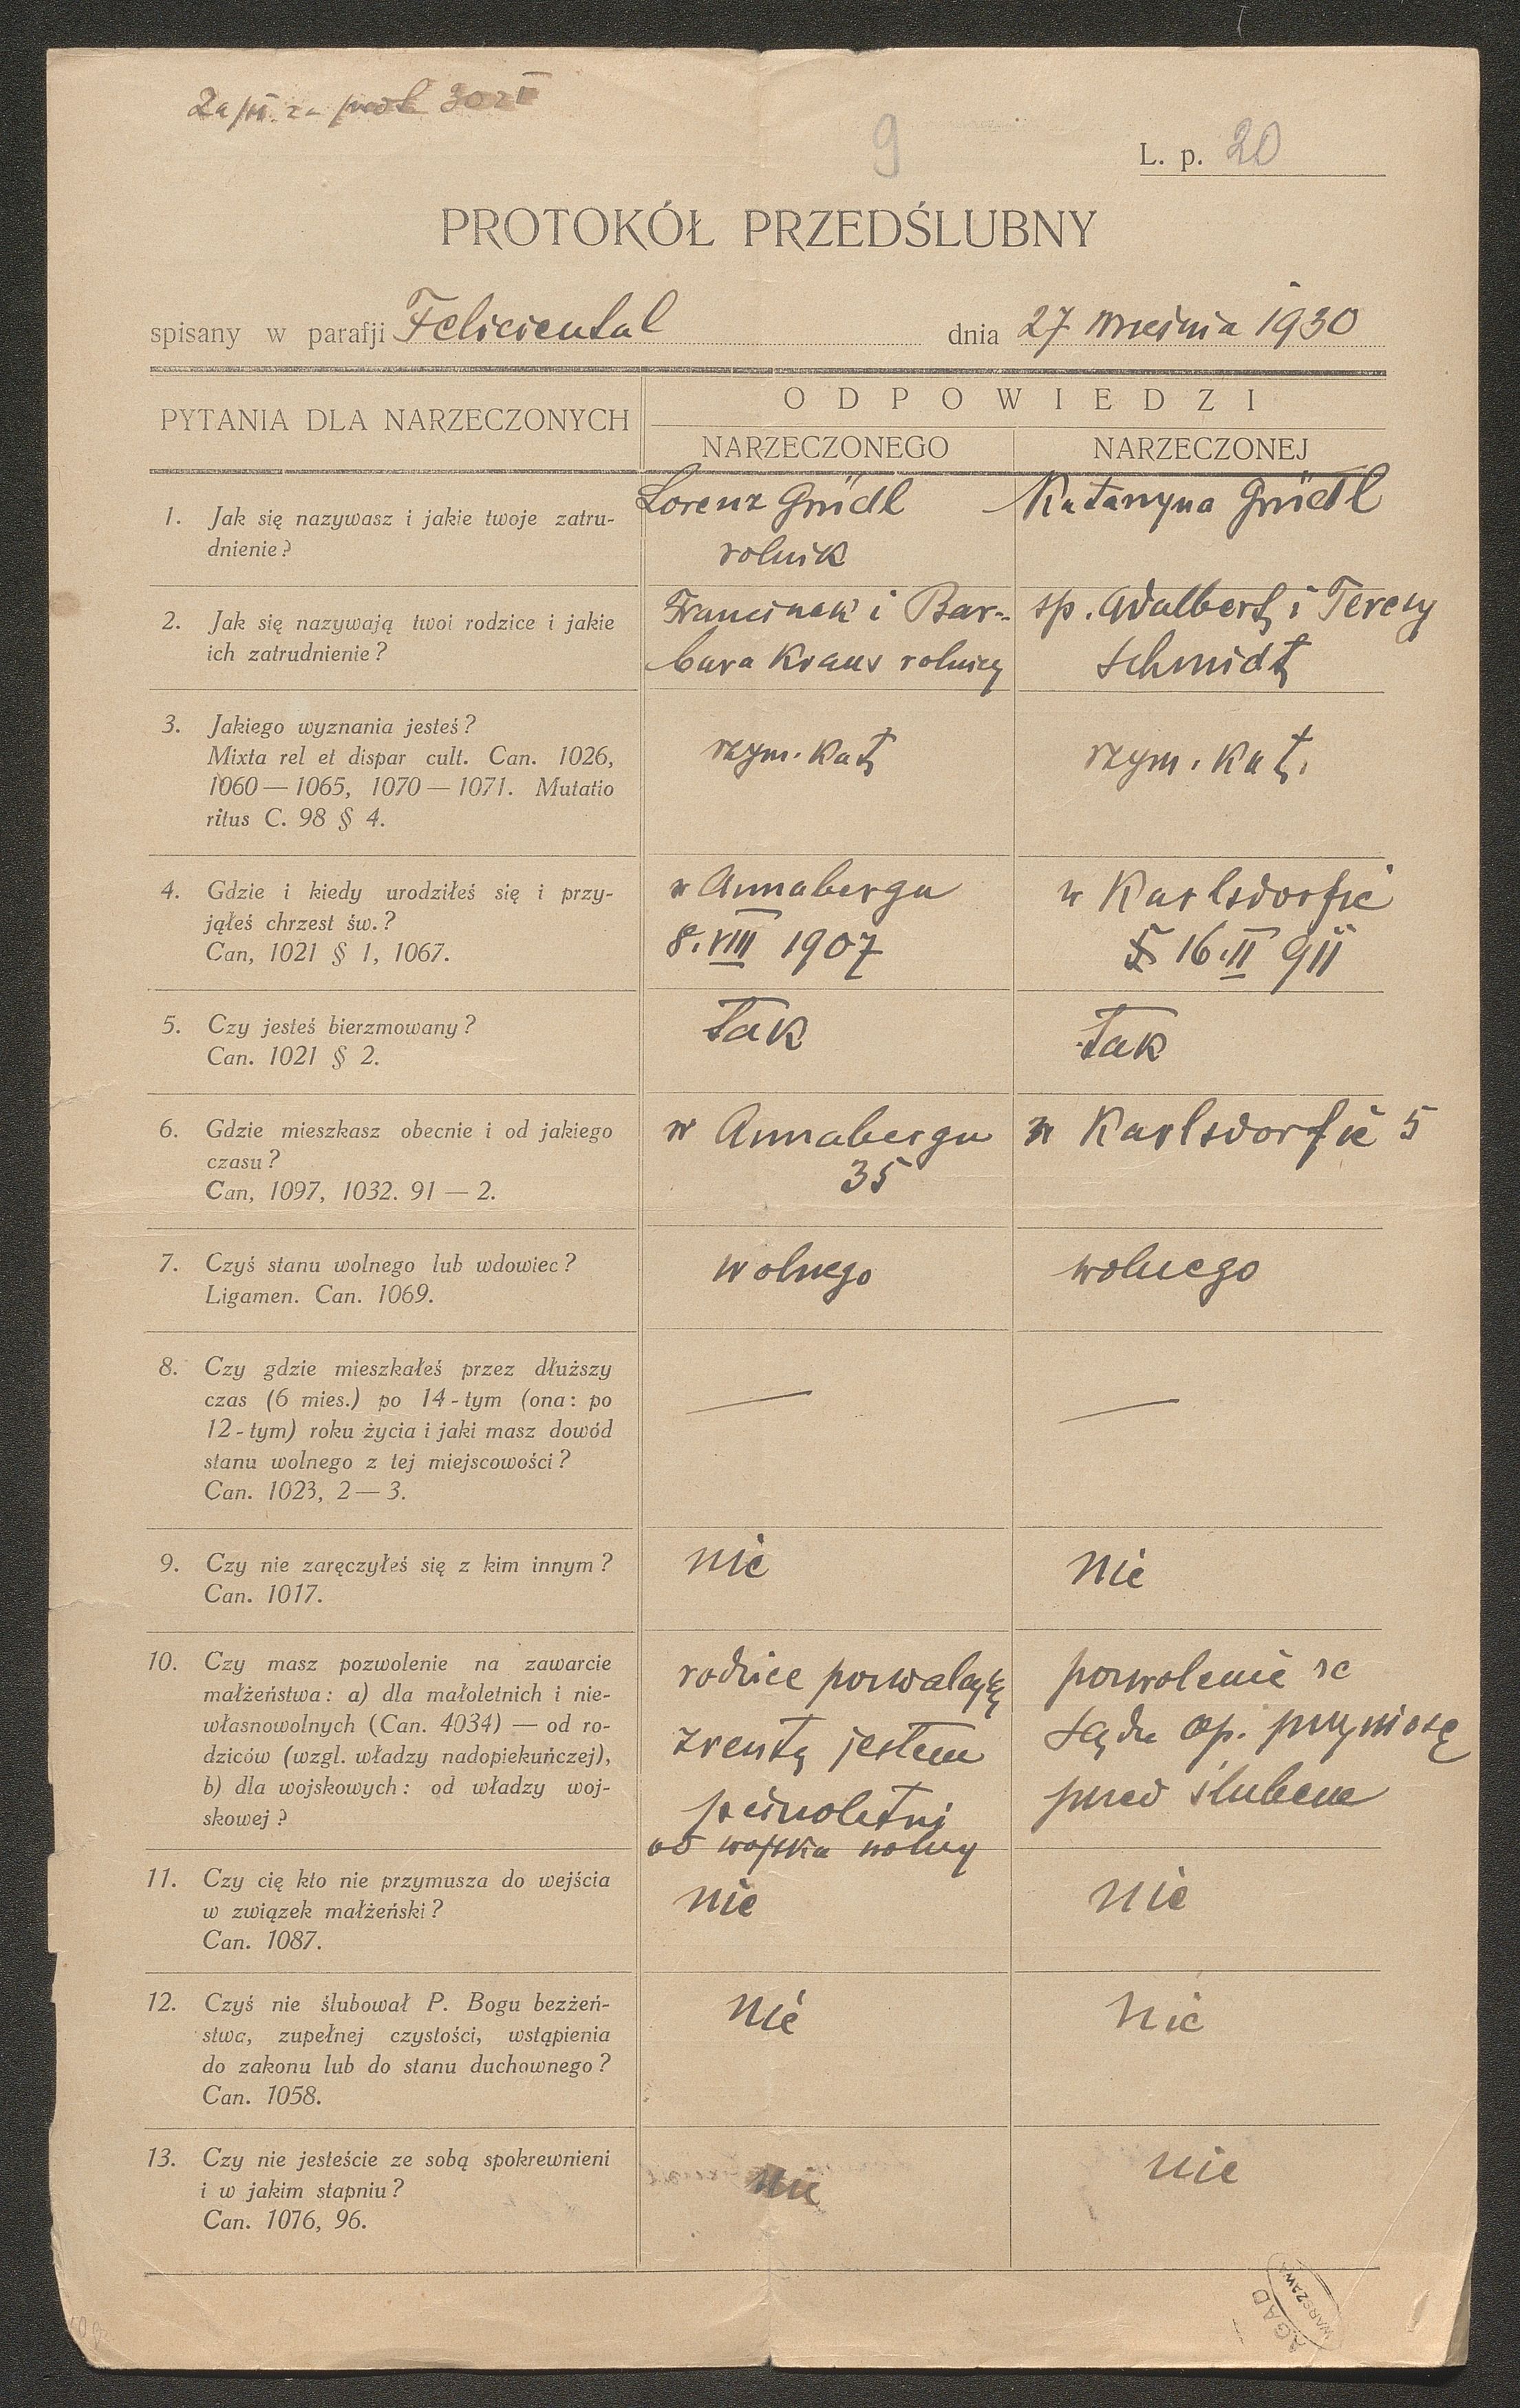 Zapł. za
9
L. p. 20
PROTOKÓŁ PRZEDŚLUBNY
spisany w parafji Feliciental dnia 27 września 1930
PYTANIA DLA NARZECZONYCH
ODPOWIEDZI
NARZECZONEGO NARZECZONEJ
1. Jak się nazywasz i jakie twoje zatru-
dnienie?
Lorenz Gründl
rolnik
Katarzyna Gründl
2. Jak się nazywają twoi rodzice i jakie
ich zatrudnienie?
Franciszek i Bar-
bara Kraus rolnicy
sp. Adalbert i Teresy
Schmidt
3. Jakiego wyznania jesteś?
Mixta rel et dispar cult. Can. 1026,
1060 — 1065, 1070 — 1071. Mutatio
ritus C. 98 § 4.
rzym. kat
rzym. kat.
4. Gdzie i kiedy urodziłeś się i przy-
jąłeś chrzest św.?
Can, 1021 § 1, 1067.
w Annabergu
8. VIII 1907
w Karlsdorfie
16. II 911
5. Czy jesteś bierzmowany?
Can. 1021 § 2.
tak
tak
6. Gdzie mieszkasz obecnie i od jakiego
czasu?
Can, 1097, 1032. 91 — 2.
w Annabergu
35
w Karlsdorfie 5
7. Czyś stanu wolnego lub wdowiec?
Ligamen. Can. 1069.
wolnego
wolnego
8. Czy gdzie mieszkałeś przez dłuższy
czas (6 mies.) po 14-tym (ona: po
12-tym) roku życia i jaki masz dowód
stanu wolnego z tej miejscowości?
Can. 1023, 2 — 3.
—
—
9. Czy nie zaręczyłeś się z kim innym?
Can. 1017.
nie
nie
10. Czy masz pozwolenie na zawarcie
małżeństwa: a) dla małoletnich i nie-
własnowolnych (Can. 4034) — od ro-
dziców (wzgl. władzy nadopiekuńczej),
b) dla wojskowych: od władzy woj-
skowej?
rodzice pozwalają
zresztą jestem
pełnoletni
od wojska wolny
pozwolenie ze
sądu op. przyniosę
przed ślubem
11. Czy cię kto nie przymusza do wejścia
w związek małżeński?
Can. 1087.
nie
nie
12. Czyś nie ślubował P. Bogu bezżeń-
stwa, zupełnej czystości, wstąpienia
do zakonu lub do stanu duchownego?
Can. 1058.
nie
nie
13. Czy nie jesteście ze sobą spokrewnieni
i w jakim stapniu?
Can. 1076, 96.
nie
nie
AGAD
WARSZAWA